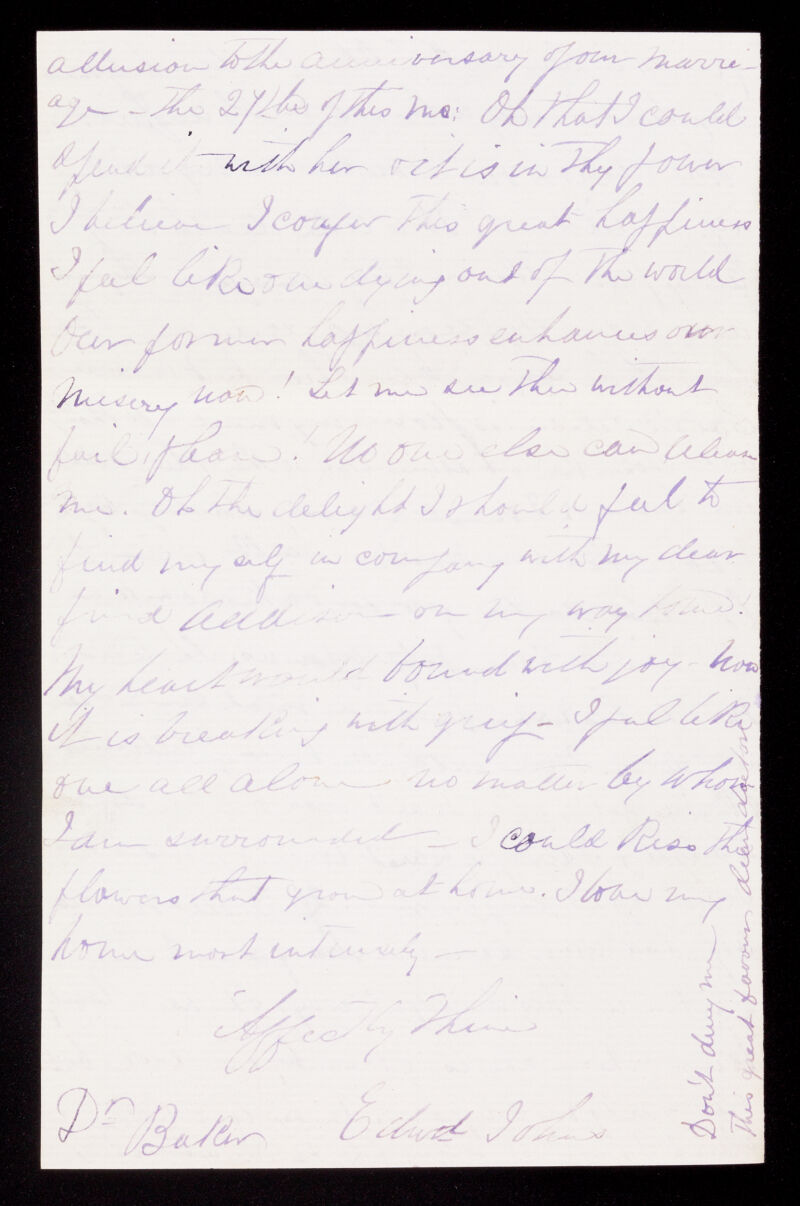 allusion to the anniversary of our marri-
age - the 27th of this mo: Oh that I could
spend it with her & it is in thy power
I believe I confer this great happiness
I feel like one dying out of the world
Our former happiness enhances our
misery now! Let me see thee without
fail, I beg! No one else can release
me. Oh the delight I should feel to
find myself in company with my dear
friend Addison - on my way home!
My heart would bound with joy - Now
it is breaking with grief - I feel like
one all alone no matter by whom
I am surrounded - I could kiss the
flowers that grow at home. I love my
home most intensely -
Affectly Thine
Dr Baker Edwd Johns
Don't deny me
this great favour dear doctor